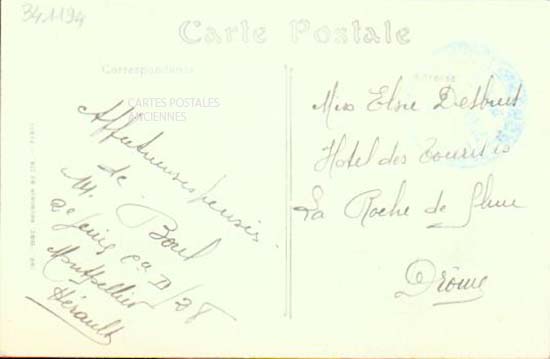 341194
Carte Postale
Correspondance
Adresse
CARTES POSTALES
ANCIENNES
Affectueuses pensées
de
M. Borel
2e Génie
Montpellier
Hérault
Miss Elsie
Hotel des Touristes
La Roche de Glun
Drôme